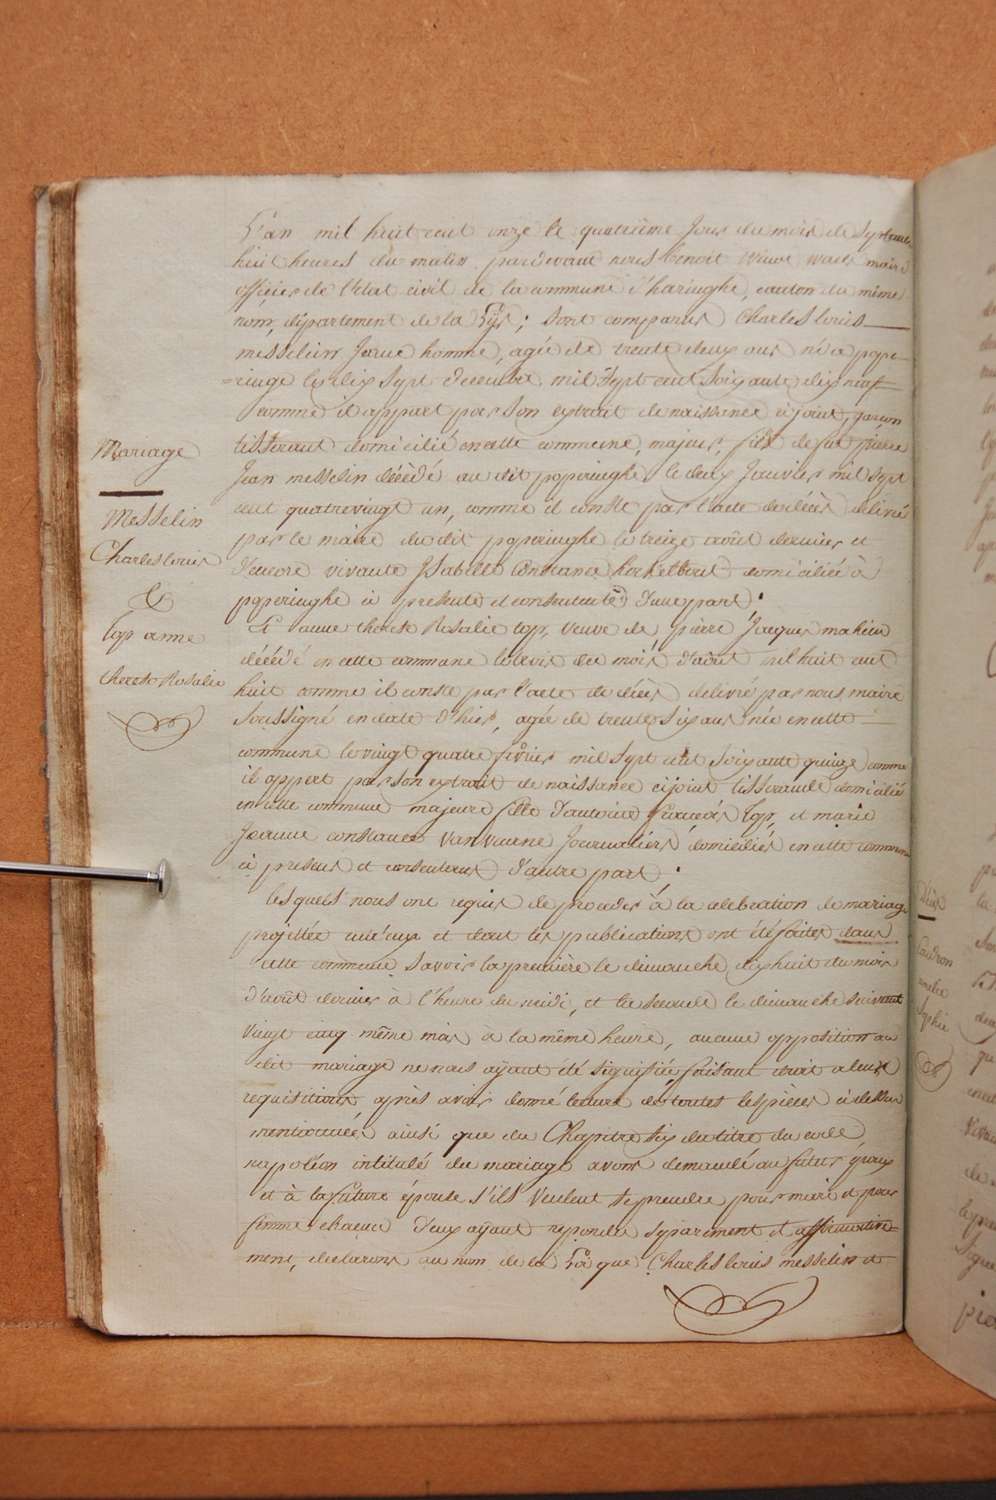 L'an mil huit cent onze le quatrième Jour du mois de Septembre
huit heures du matin pardevant nous benoit maire
officier de l'Etat civil de la commune d'haringhe, canton du même
nom, département de la Lÿs; sont comparus Charles louis
messelin Jeune homme, agée de trente deux ans né a pope-
=ringe le dix Sept decembre mil Sept cent Soixante dix neuf
comme il appert par Son extrait de naissance cijoint, garçon
tisserant domicilié en cette commune, majeur, fils de feu pierre
Jean messelin décèdé au dit poperinghe le deux Janvier mil sept
cent quatrevingt un, comme il conste par l'acte de décès délivré
par le maire du dit poperinghe le treize août dernier et
d'encore vivante Isabelle Constance domiciliée à
poperinghe ci présente et consentente d'une part;
Et anne therese Rosalie top, veuve de pierre Jacques mahieu
décédé en cette commune le trois du mois d'août mil huit cent
huit comme il conste par l'acte de décès delivré par nous maire
Soussigné en date d'hier, agée de trente Six ans née en cette
commune le vingt quatre février mil sept cent Soixante quinze comme
il appert par son extrait de naissance cijoint tisserande domicilié
en cette commune majeure fille d'antoine françois Top, et marie
Jeanne constance Vanvaerne Journaliers domiciliés en cette commune
ci présens et consentens d'autre part.
lesquels nous ont requis de proceder à la celebration de mariage
projettée entr'eux et dont les publications ont été faites dans
cette commune Savoir la première le dimanche dix huit du mois
d'août dernier à l'heure de midi, et la seconde le dimanche suivant
vingt cinq même mois à la même heure, aucune opposition au
dit mariage ne nous aÿant été signifiée, faisant droit a leurs
requisitions après avoir donné lecture de toutes les pièces ci dessus
mentionnées ainsi que du Chapitre six du titre du code
napoléon intitulé du mariage avons demandé au futur époux
et à la future épouse s'ils veulent se prendre pour mari et pour
femme chacun d'eux aÿant repondu séparement et affirmative-
ment, declarons au nom de la Loi que Charles louis messelin et
Mariage
Messelin
Charles louis
&
top anne
therese Rosalie
Décès
Caudron
Sophie